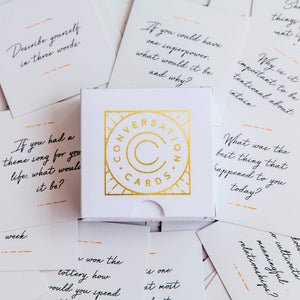 Describe yourself
in three words.
If you would have
one superpower,
what would it be
and why?
Why is
important to be
cational about
ence.
CONVERSATION
CARDS
If you had a
theme song for you
life, what would
it be?
What was the
best thing that
happened to you
today?
week
u won the
lottery, how
would you spend
most
meaningful
relationships?